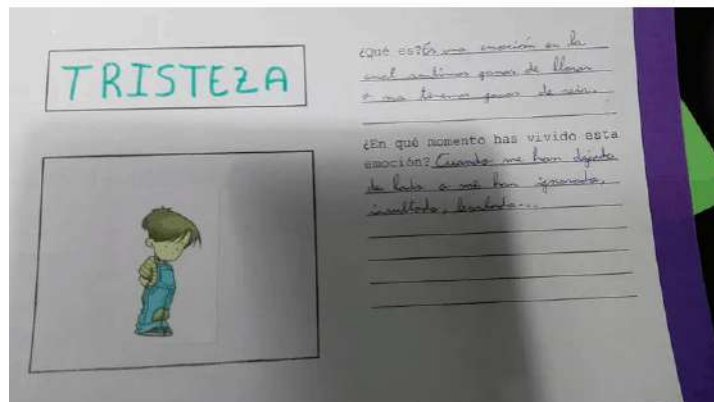 TRISTEZA
¿Qué es? Es una emoción en la
cual sentimos ganas de llorar
o no tenemos ganas de reír.
¿En qué momento has vivido esta
emoción? Cuando me han dejado
de lado o me han ignorado,
insultado, burlado...